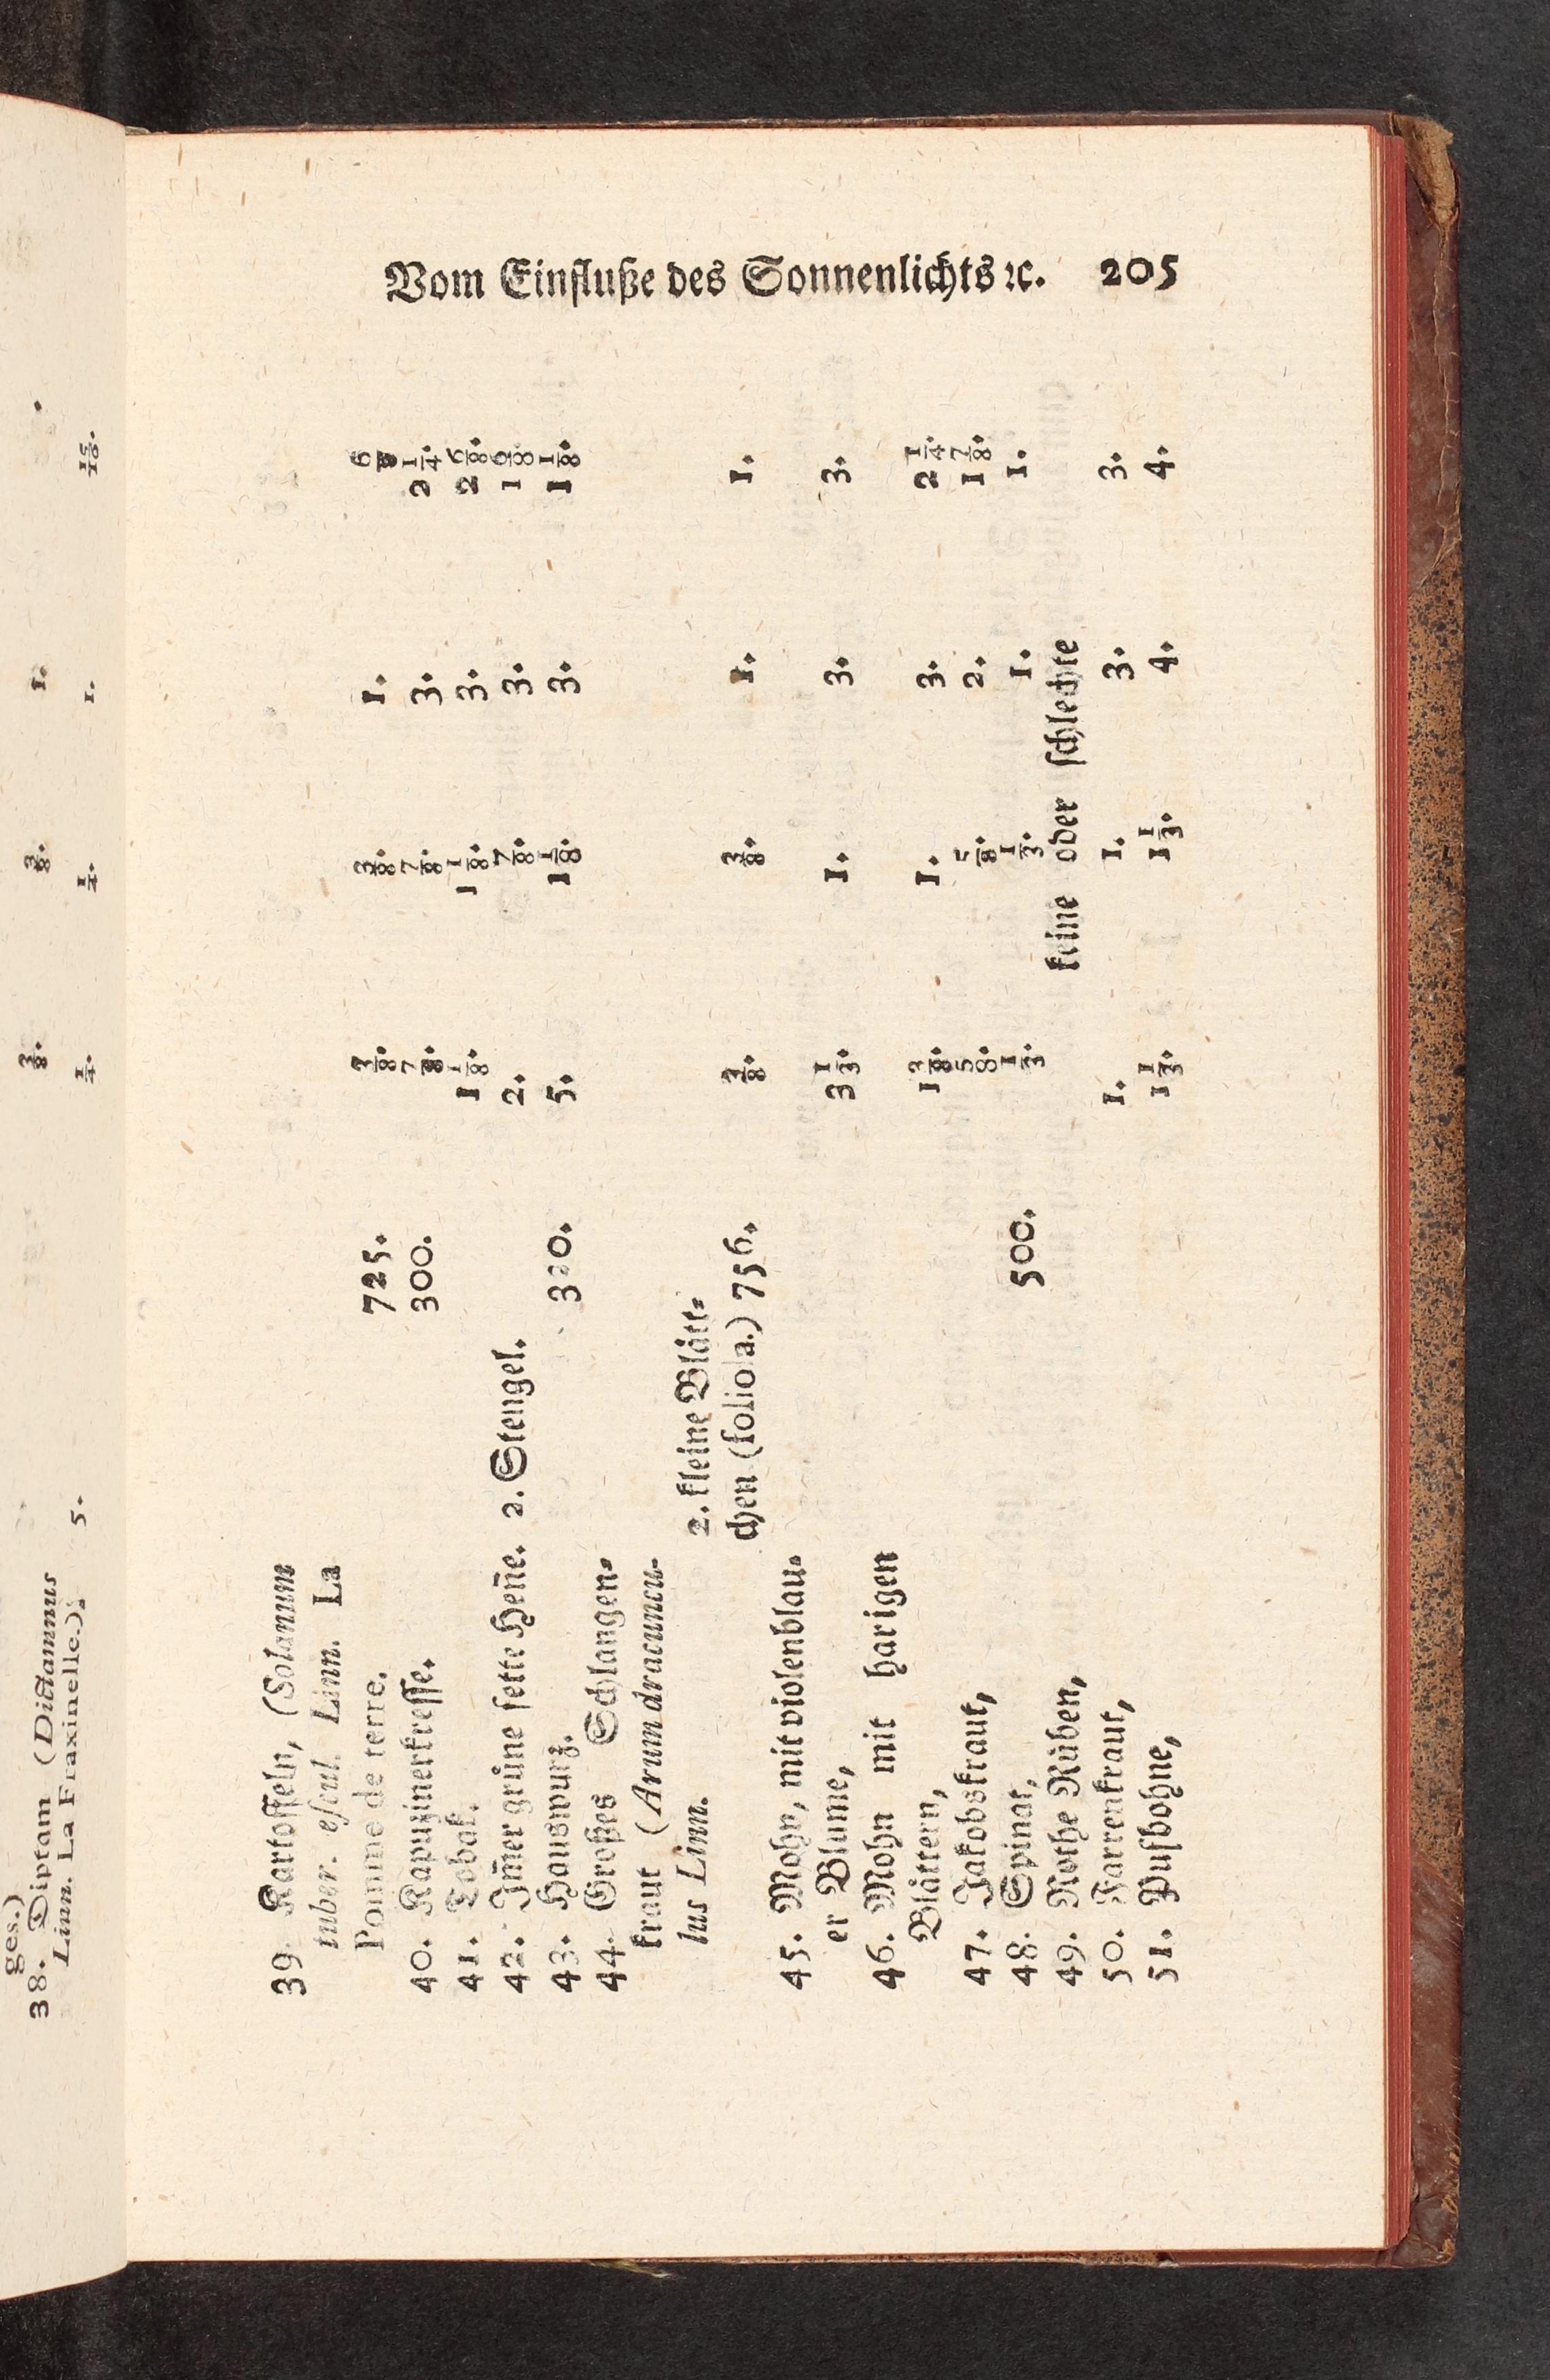 Vom Einfluße des Sonnenlichts ꝛc. 205
ges.)
38. Diptam (Dictamnus 3/8. 3/8. 1.
Linn. La Fraxinelle.) 5. 1/4. 1/4. 1. 15/16.
39. Kartoffeln, (Solanum
tuber. escul. Linn. La
Pomme de terre. 725. 3/8. 3/8. 1. 6/8
40. Kapuzinerkresse. 300. 7/8. 7/8. 3. 2 1/4.
41. Tobak. 1 1/8. 1 1/8. 3. 2 5/8.
42. Im̃er grüne fette Heñe. 2. Stengel. 2. 7/8. 3. 1 6/8
43. Hauswurz. 320. 5. 1 1/8. 3. 1 1/8.
44. Großes Schlangen⸗
kraut (Arum dracuncu-
lus Linn. 2. kleine Blätt⸗
chen (foliola.) 756. 3/8. 3/8. 1. 1.
45. Mohn, mit violenblau⸗
er Blume, 3 1/3. 1. 3. 3.
46. Mohn mit harigen
Blättern, 1 3/8. 1. 3. 2 1/4.
47. Jakobskraut, 5/8. 5/8. 2. 1 7/8.
48. Spinat, 500. 1/3. 1/3. 1. 1.
49. Rothe Rüben, keine oder schlechte
50. Farrenkraut, 1. 1. 3. 3.
51. Pufbohne, 1 1/3. 1 1/3. 4. 4.